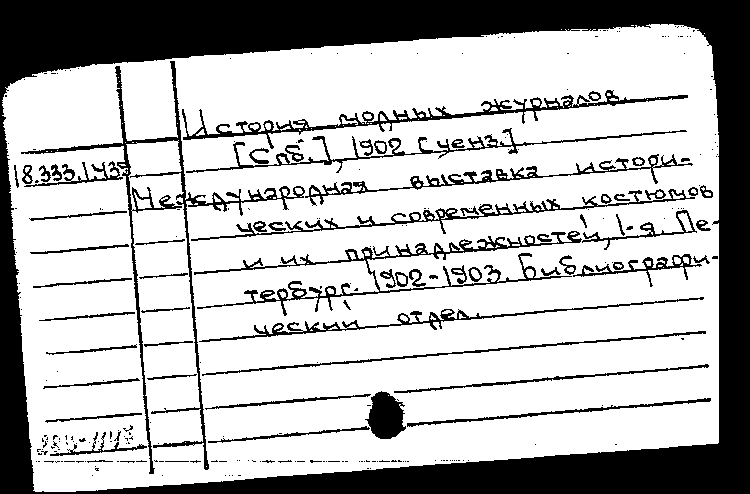 История модных журналов.
[Спб.], 1902 [ценз.].
18.333.1.439
Международная выставка истори-
ческих и современных костюмов
и их принадлежностей, 1-я. Пе-
тербург. 1902-1903. Библиографи-
ческий отдел.